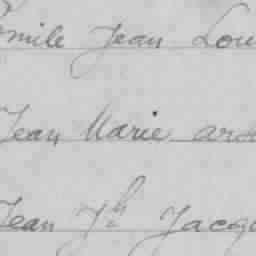 Emile Jean Lou
Jean Marie ar
Jean Jh Jacq